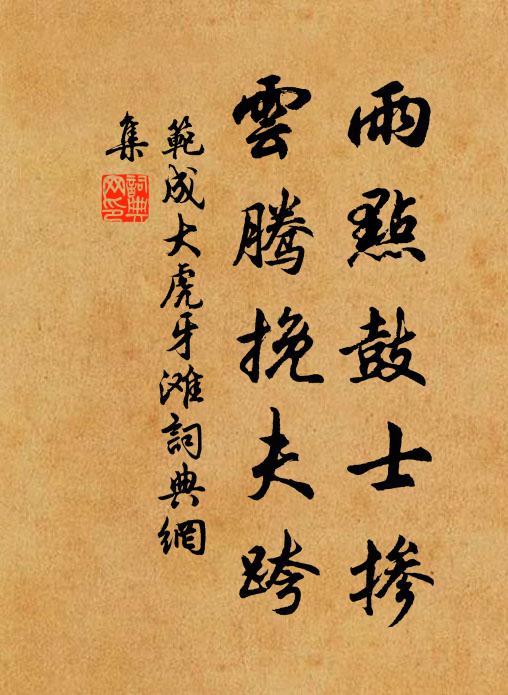 雨點鼓士摻
雲騰挽夫跨
範成大虎牙滩詞典網
集
詞典网印